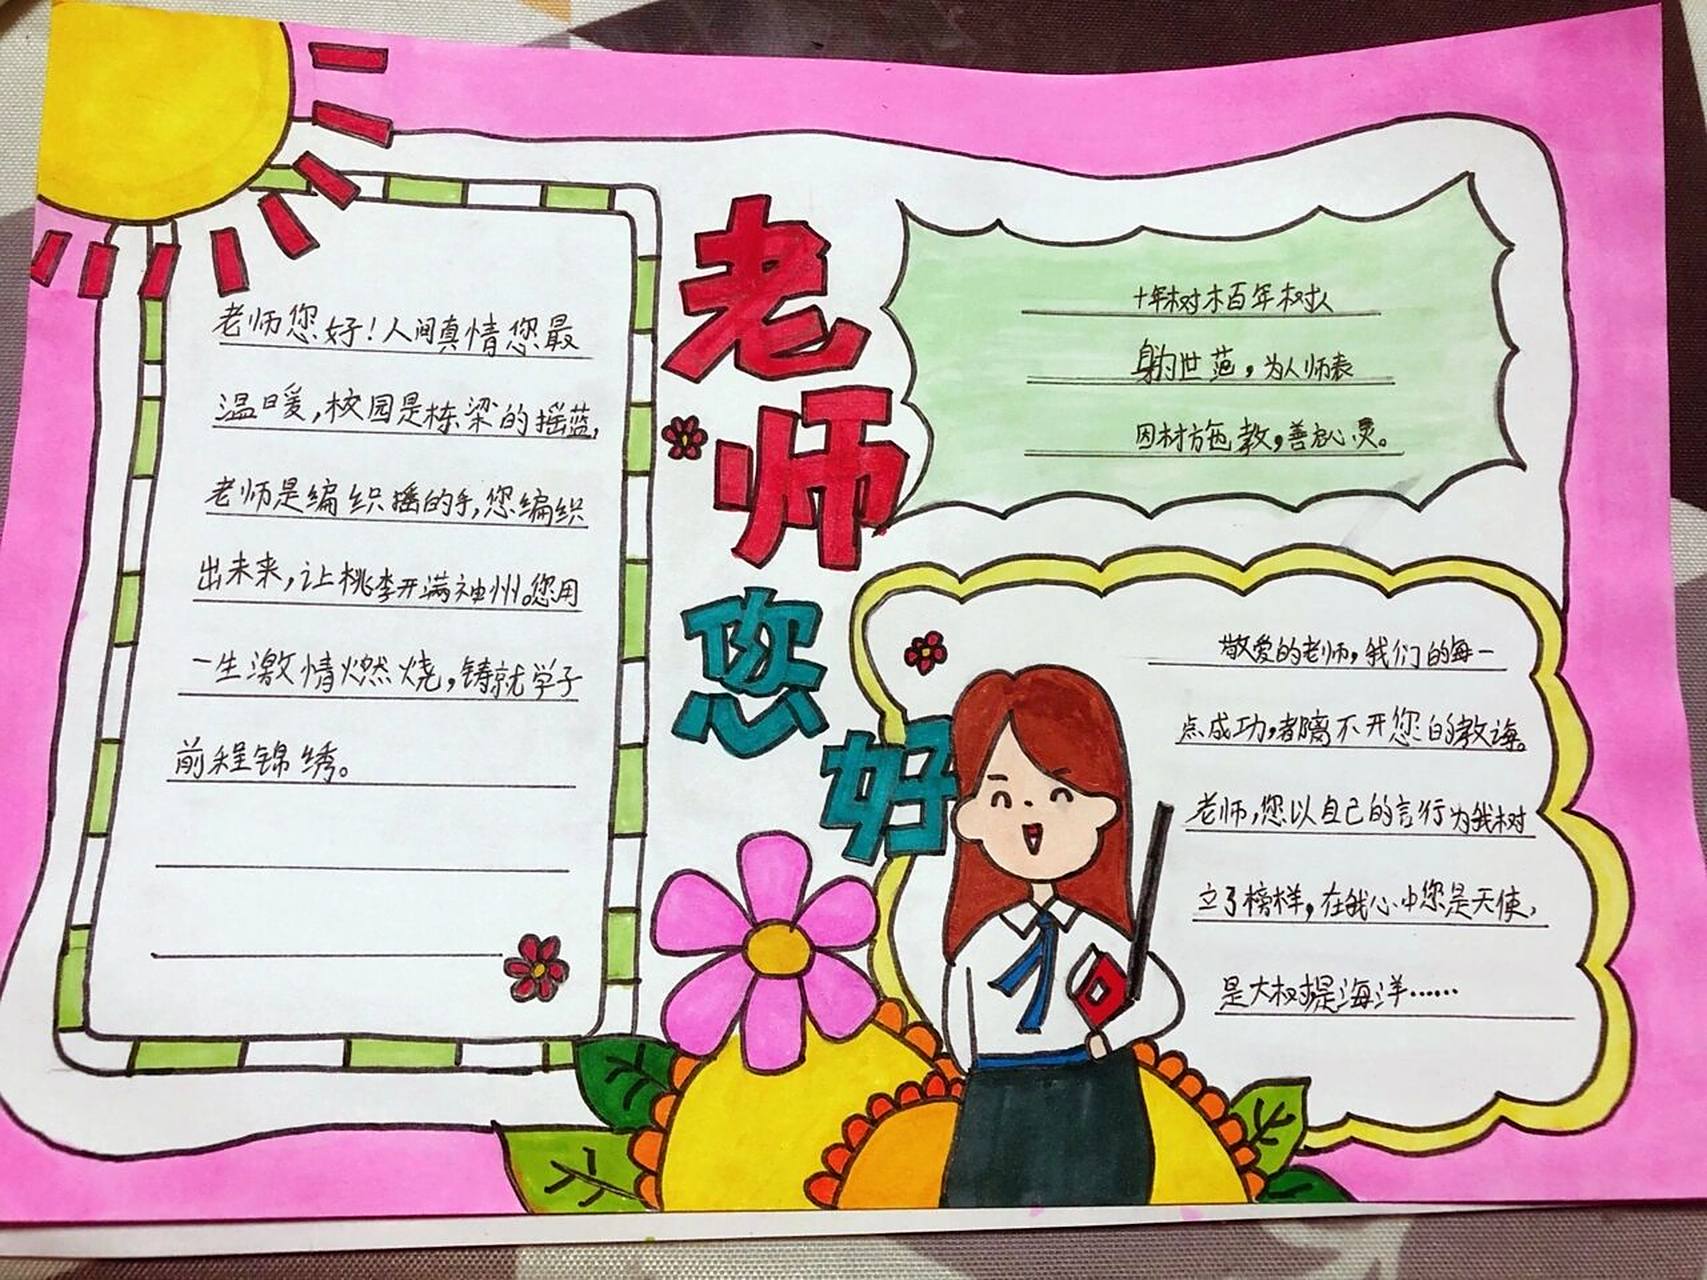 老师您好！人间真情您最
温暖，校园是栋梁的摇蓝，
老师是编织摇的手，您编织
出未来，让桃李开满神州。您用
一生激情燃烧，铸就学子
前程锦绣。
老师
您好
十年树木百年树人
躬为世范，为人师表
因材施教，善启心灵。
敬爱的老师，我们的每一
点成功，都离不开您的教诲。
老师，您以自己的言行为我树
立了榜样，在我心中您是天使，
是大树是海洋……